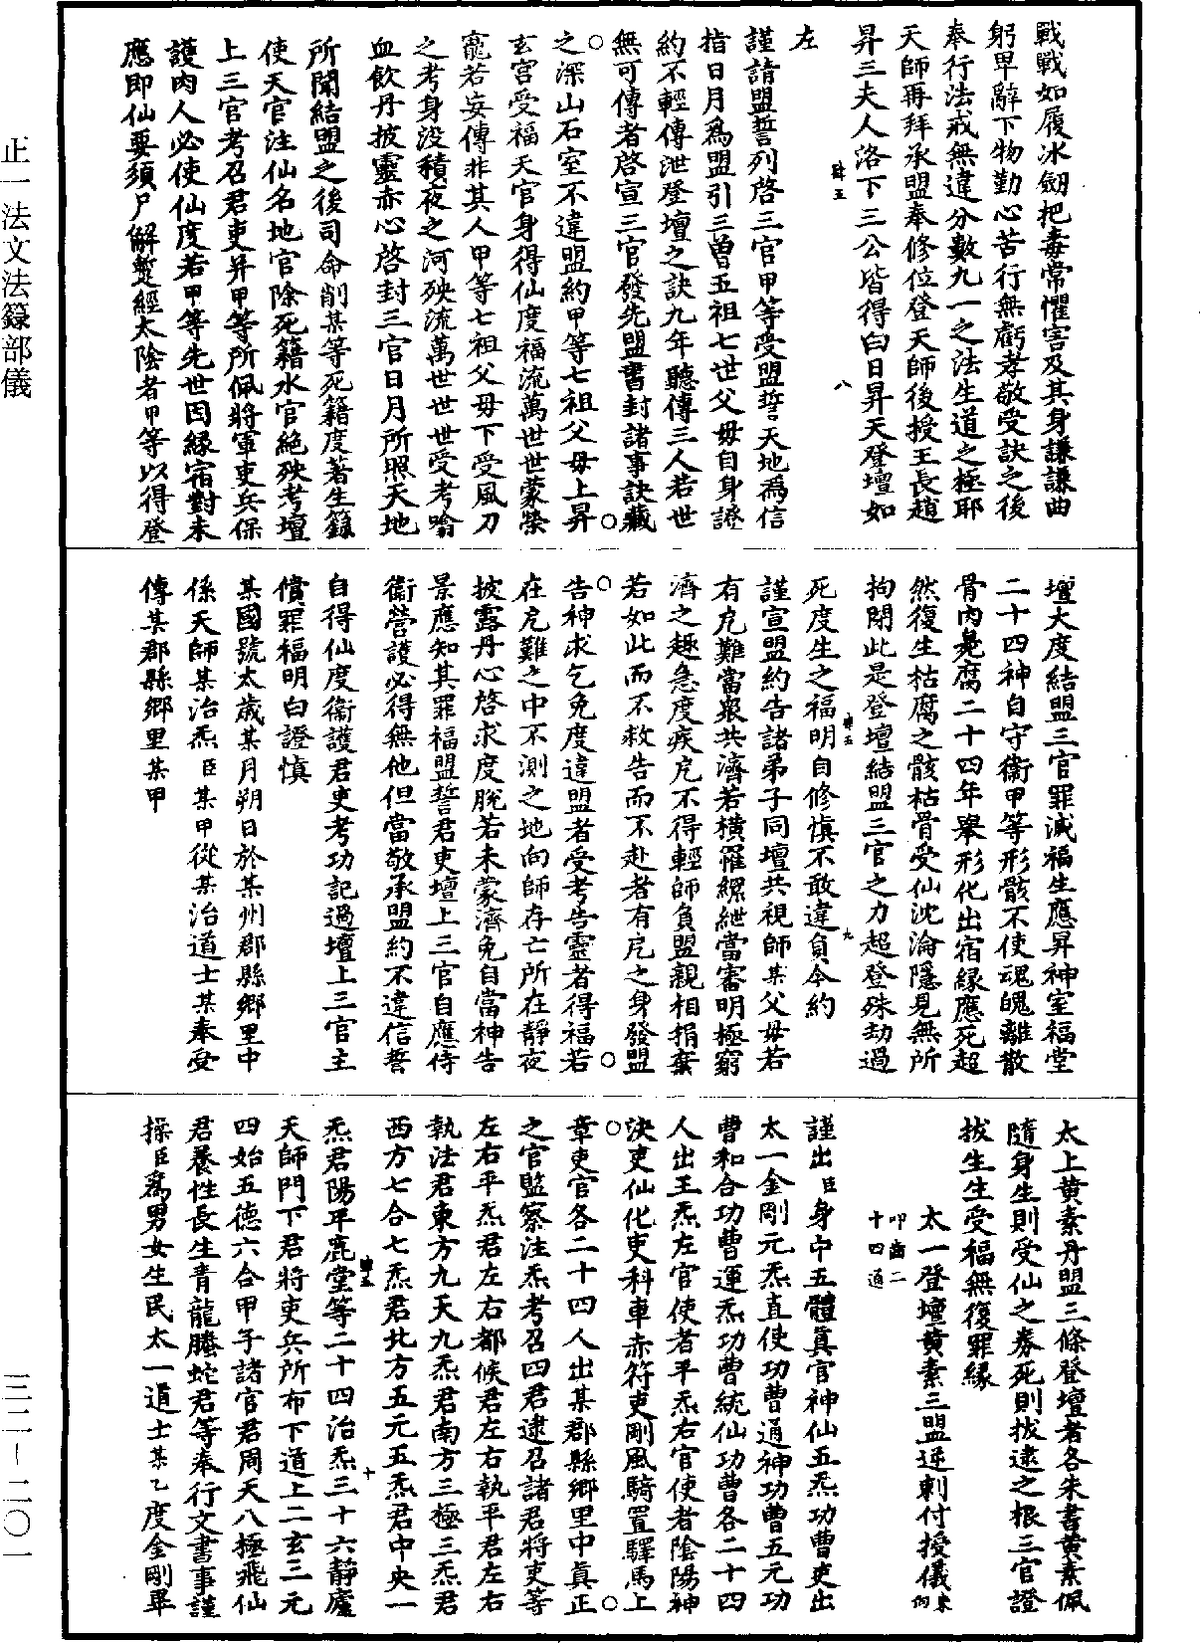 戰戰如履冰劒把毒常懼害及其身謙謙曲
躬卑辭下物勤心苦行無虧孝敬受訣之後
奉行法戒無違分數九一之法生道之極耶
天師再拜承盟奉修位登天師後授王長趙
昇三夫人洛下三公皆得白日昇天登壇如
左
謹請盟誓列啓三官甲等受盟誓天地爲信
指日月爲盟引三曾五祖七世父母自身證
約不輕傳泄登壇之訣九年聽傳三人若世
無可傳者啓宣三官發先盟書封諸事訣藏
之深山石室不違盟約甲等七祖父母上昇
玄宫受福天官身得仙度福流萬世世蒙榮
寵若妄傳非其人甲等七祖父母下受風刀
之考身没積夜之河殃流萬世世世受考喻
血飲丹披靈赤心啓封三官日月所照天地
所聞結盟之後司命削某等死籍度著生籙
使天官注仙名地官除死籍水官絕殃考壇
上三官考召君吏并甲等所佩將軍吏兵保
護肉人必使仙度若甲等先世因緣宿對未
應即仙要須尸解蹔經太陰者甲等以得登
壇大度結盟三官罪滅福生應昇神室福堂
二十四神自守衛甲等形骸不使魂魄離散
骨肉臰腐二十四年舉形化出宿緣應死超
然復生枯腐之骸枯骨受仙沈淪隱見無所
拘閉此是登壇結盟三官之力超登殊劫過
死度生之福明自修慎不敢違負今約
謹宣盟約告諸弟子同壇共視師某父母若
有危難當衆共濟若橫罹縲紲當審明極窮
濟之趣急度疾危不得輕師負盟親相捐棄
若如此而不救告而不赴者有危之身發盟
告神求乞免度違盟者受考告靈者得福若
在危難之中不測之地向師存亡所在靜夜
披露丹心啓求度脫若未蒙濟免自當神告
景應知其罪福盟誓君吏壇上三官自應侍
衛營護必得無他但當敬承盟約不違信誓
自得仙度衛護君吏考功記過壇上三官主
償罪福明白證慎
某國號太歲某月朔日於某州郡縣鄉里中
係天師某治炁臣某甲從某治道士某奉受
傳某郡縣鄉里某甲
太上黄素丹盟三條登壇者各朱書黄素佩
隨身生則受仙之券死則拔逮之根三官證
拔生生受福無復罪緣
太一登壇黄素三盟逆刺付授儀東向
叩齒二十四通
謹出臣身中五體真官神仙五炁功曹吏出
太一金剛元炁直使功曹通神功曹五元功
曹和合功曹運炁功曹統仙功曹各二十四
人出王炁左官使者平炁右官使者陰陽神
決吏仙化吏科車赤符吏剛風騎置驛馬上
章吏官各二十四人出某郡縣鄉里中真正
之官監察注炁考召四君逮召諸君將吏等
左右平炁君左右都候君左右執平君左右
執法君東方九天九炁君南方三極三炁君
西方七合七炁君北方五元五炁君中央一
炁君陽平鹿堂等二十四治炁三十六靜廬
天師門下君將吏兵所布下道上二玄三元
四始五德六合甲子諸官君周天八極飛仙
君養性長生青龍騰蛇君等奉行文書事謹
操臣爲男女生民太一道士某乙度金剛畢
正一法文法籙部儀
三二－二〇一